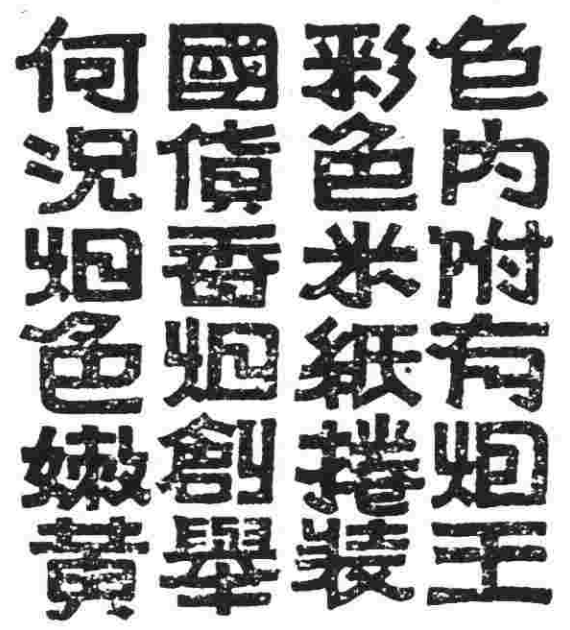 色内附有烟王
彩色米紙捲装
國貨香烟創舉
何況烟色嫩黃